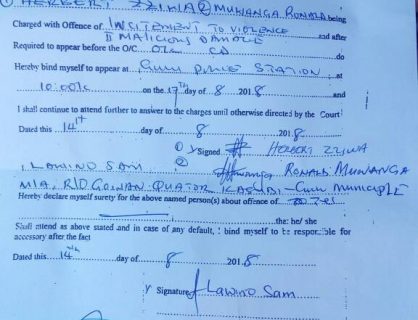 ① HERBERT ZZIWA ② MUWANGA RONALD being
Charged with Offence of I INSITEMENT TO VIOLENCE and after
II MALICIOUS DAMAGE
Required to appear before the O/C CID do
Hereby bind myself to appear at GULU POLICE STATION at
10:00 on the 17th day of 8 2018 and
I shall continue to attend further to answer to the charges until otherwise directed by the Court
Dated this 14th day of 8 2018
① Signed HERBERT ZZIWA
② RONALD MUWANGA
I LAWINO SAM
M/A, R/O GOWAN QUATOR - GULU MUNICIPLE
Hereby declare myself surety for the above named person(s) about offence of
the: he/ she
Shall attend as above stated and in case of any default, I bind myself to be responsible for
accessory after the fact
Dated this 14th day of 8 2018
Signature Lawino Sam